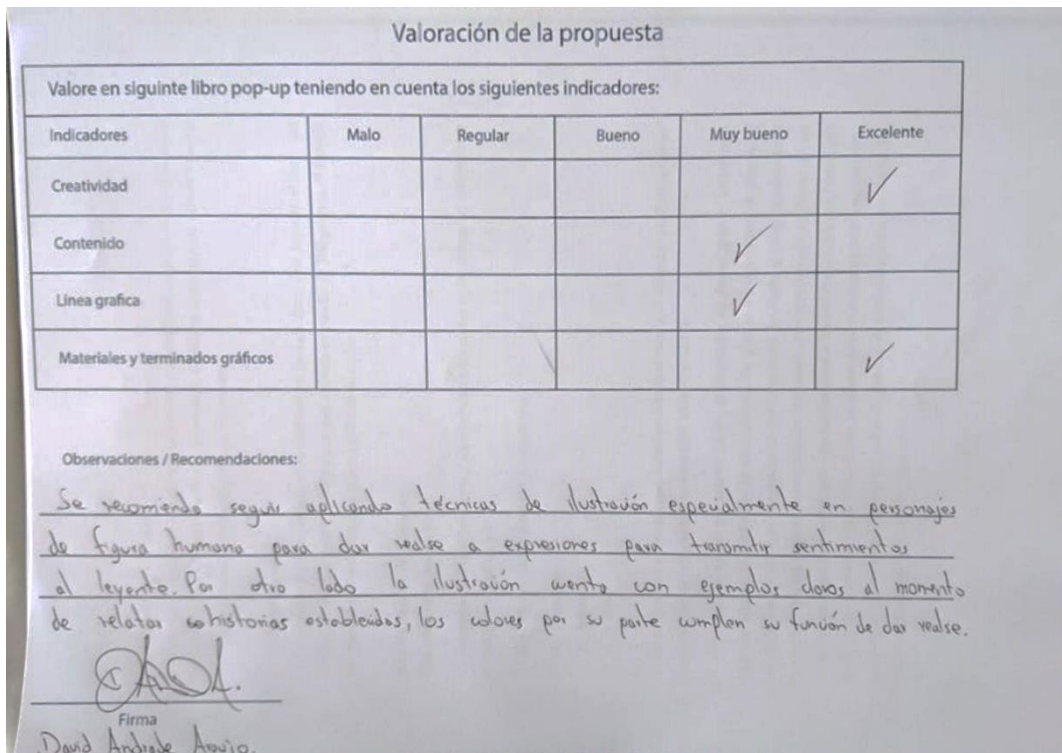 Valoración de la propuesta
Valore en siguinte libro pop-up teniendo en cuenta los siguientes indicadores:
Indicadores Malo Regular Bueno Muy bueno Excelente
Creatividad ✓
Contenido ✓
Línea grafica ✓
Materiales y terminados gráficos ✓
Observaciones / Recomendaciones:
Se recomienda seguir aplicando técnicas de ilustración especialmente en personajes
de figura humana para dar realse a expresiones para transmitir sentimientos
al leyente. Por otro lado la ilustración cuenta con ejemplos claros al momento
de relatar historias establecidas, los colores por su parte cumplen su función de dar realse.
Firma
David Andrade